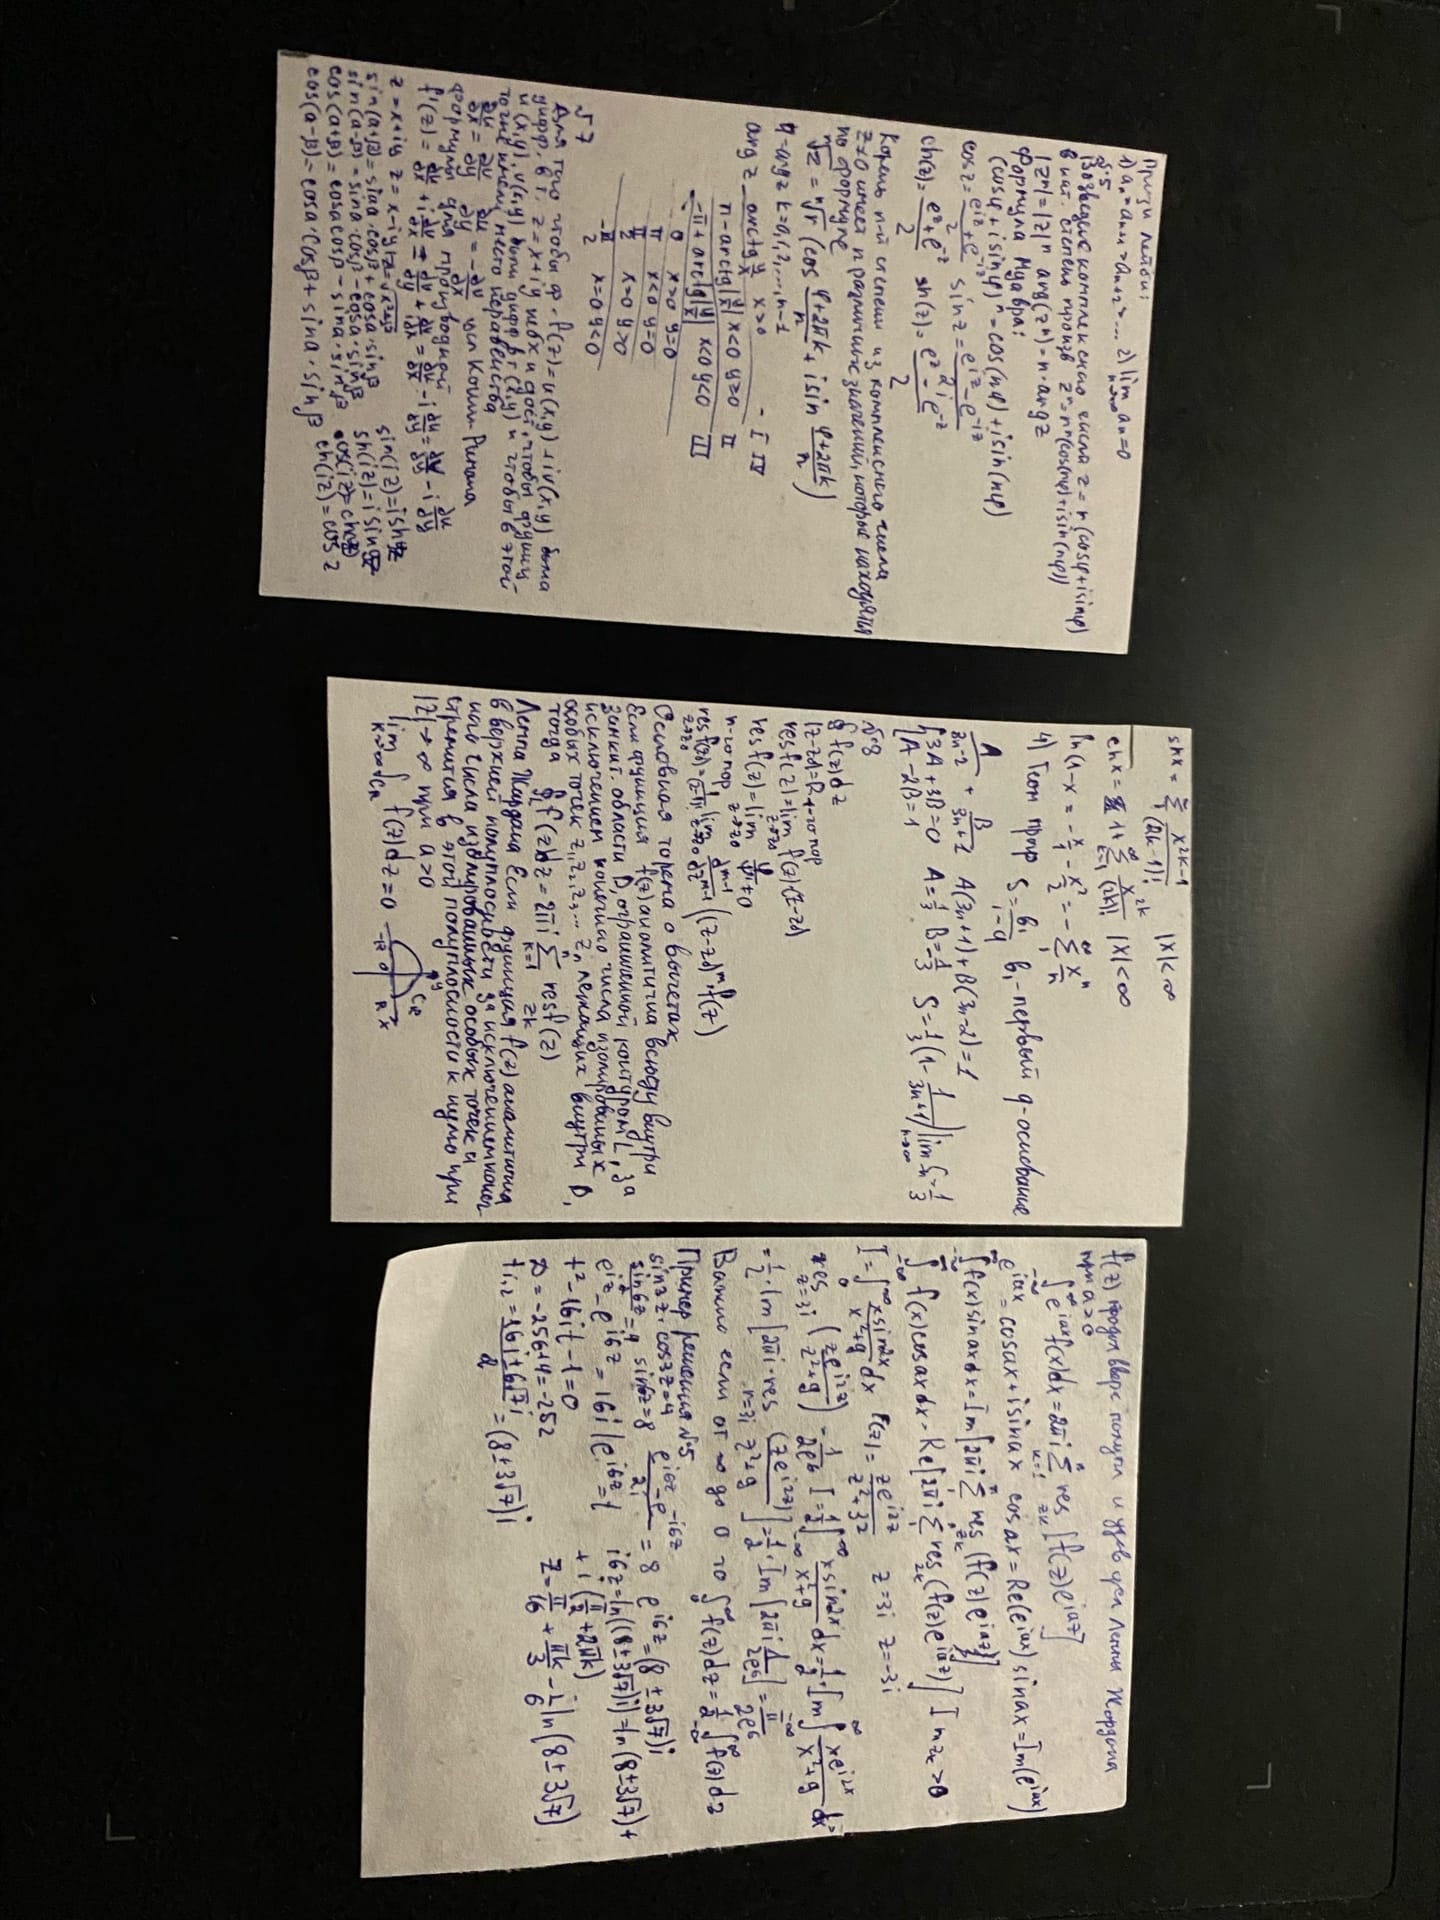 Призн лейбн:
1) aₙ > aₙ₊₁ > aₙ₊₂ > ... 2) lim aₙ=0
n→∞
№5
Возведение комплексного числа z = r (cosφ+isinφ)
в нат. степень произв zⁿ=rⁿ(cos(nφ)+isin(nφ))
|zⁿ|=|z|ⁿ arg(zⁿ)=n·argz
Формула Муавра:
(cosφ+isinφ)ⁿ=cos(nφ)+isin(nφ)
cosz=(e^{iz}+e^{-iz})/2 sinz=(e^{iz}-e^{-iz})/2i
ch(z)=(e^z+e^{-z})/2 sh(z)=(e^z-e^{-z})/2
Корень n-й степени из комплексного числа
z≠0 имеет n различных значений, которые находятся
по формуле
ⁿ√z = ⁿ√r (cos (φ+2πk)/n + isin (φ+2πk)/n)
φ=argz k=0,1,2,...,n-1
argz arctg y/x x>0 - I IV
π-arctg|y/x| x<0 y≥0 II
-π+arctg|y/x| x<0 y<0 III
0 x>0 y=0
π x<0 y=0
π/2 x=0 y>0
-π/2 x=0 y<0
№7
Для того чтобы ф. f(z)=u(x,y)+iv(x,y) была
дифф. в т. z=x+iy небх и дост, чтобы функц
u(x,y), v(x,y) были дифф в т (x,y) и чтобы в этой
точке имели место неравенства
∂u/∂x=∂v/∂y ∂u/∂y=-∂v/∂x усл Коши-Римана
Формулы для производной
f'(z)=∂u/∂x+i∂v/∂x=∂v/∂y+∂v/i∂x=∂u/∂x-i∂u/∂y=∂v/∂y-i∂u/∂y
z=x+iy z=x-iy |z|=√x²+y²
sin(a+β)=sina·cosβ+cosa·sinβ
sin(a-β)=sina·cosβ-cosa·sinβ
cos(a+β)=cosacosβ-sina·sinβ
cos(a-β)=cosa·cosβ+sina·sinβ
sin(iz)=ishz
sh(iz)=isinz
cos(iz)=chz
ch(iz)=cosz
shx=∑₁^∞ x^{2k-1}/(2k-1)! |x|<∞
chx=1+∑_{k=1}^∞ x^{2k}/(2k)! |x|<∞
ln(1-x = -x/1 - x²/2 = -∑₁^∞ xⁿ/n
4) Геом прогр S=b₁/(1-q) b₁-первый q-основание
A/(3n-2) + B/(3n+1) A(3n+1)+B(3n-2)=1
{3A+3B=0 A=1/3 B=-1/3 S=1/3(1-1/(3n+1)) lim Sₙ=1/3
{A-2B=1 n→∞
№8
∮f(z)dz
|z-z₀|=R 1-го пор
resf(z)=lim f(z)·(z-z₀)
z→z₀
resf(z)=lim φ/ψ' ≠0
n-го пор z→z₀
resf(z₀)= lim d^{m-1}/dz^{m-1} ((z-z₀)^m·f(z)
z→z₀
Основная торема о вычетах
Если функция f(z) аналитична всюду внутри
замкнт. области D, ограниченной контуром L, за
исключением конечного числа изолированых
особых точек z₁, z₂, z₃... zₙ лежащих внутри D,
тогда ∮_L f(z)dz=2πi ∑_{k=1}^n resf(z)
zk
Лемма Жардана Если функция f(z) аналитична
в верхней полуплосности за исключением конеч-
ного числа изолированных особых точек и
стремится в этой полуплосности к нулю при
|z|→∞ при a>0
lim ∫_{C_R} f(z)dz=0
R→∞
y C_R -R 0 R x
f(z) продол вверх полупл и удов усл Леммы Жордана
при a>0
∫_{-∞}^∞ e^{iax}f(x)dx=2πi ∑_{k=1}^n res_{zk} [f(z)e^{iaz}]
e^{iax}=cosax+isinax cosax=Re(e^{iax}) sinax=Im(e^{iax})
∫_{-∞}^∞ f(x)sinaxdx=Im[2πi ∑₁^n res_{zk}(f(z)e^{iaz})]
∫_{-∞}^∞ f(x)cosaxdx=Re[2πi ∑₁^n res_{zk}(f(z)e^{iaz})] Im zk>0
I=∫₀^∞ xsin2x/(x²+9) dx f(z)=ze^{i2z}/(z²+3²) z=3i z=-3i
res_{z=3i} (ze^{i2z}/(z²+9)) = 1/2e⁶ I=1/2∫_{-∞}^∞ xsin2x/(x²+9) dx=1/2·Im∫_{-∞}^∞ xe^{i2x}/(x²+9) dx=
=1/2·Im[2πi·res_{n=3i} (ze^{i2z})/(z²+9)]=1/2·Im[2πi 1/2e⁶]=π/2e⁶
Важно если от ∞ до 0 то ∫₀^∞ f(z)dz=1/2∫_{-∞}^∞ f(z)dz
Пример решения №5
sin3z·cos3z=4 (e^{i6z}-e^{-i6z})/2i=8 e^{i6z}=(8±3√7)i
sin6z/2=4 sin6z=8 i6z=ln((8±3√7)i)=ln(8±3√7)+
e^{iz}-e^{i6z}=16i|e^{i6z}=t +i(π/2+2πk)
t²-16it-1=0 z=π/16+πk/3-i/6 ln(8±3√7)
D=-256+4=-252
t₁,₂=(16i±6√7i)/2=(8±3√7)i